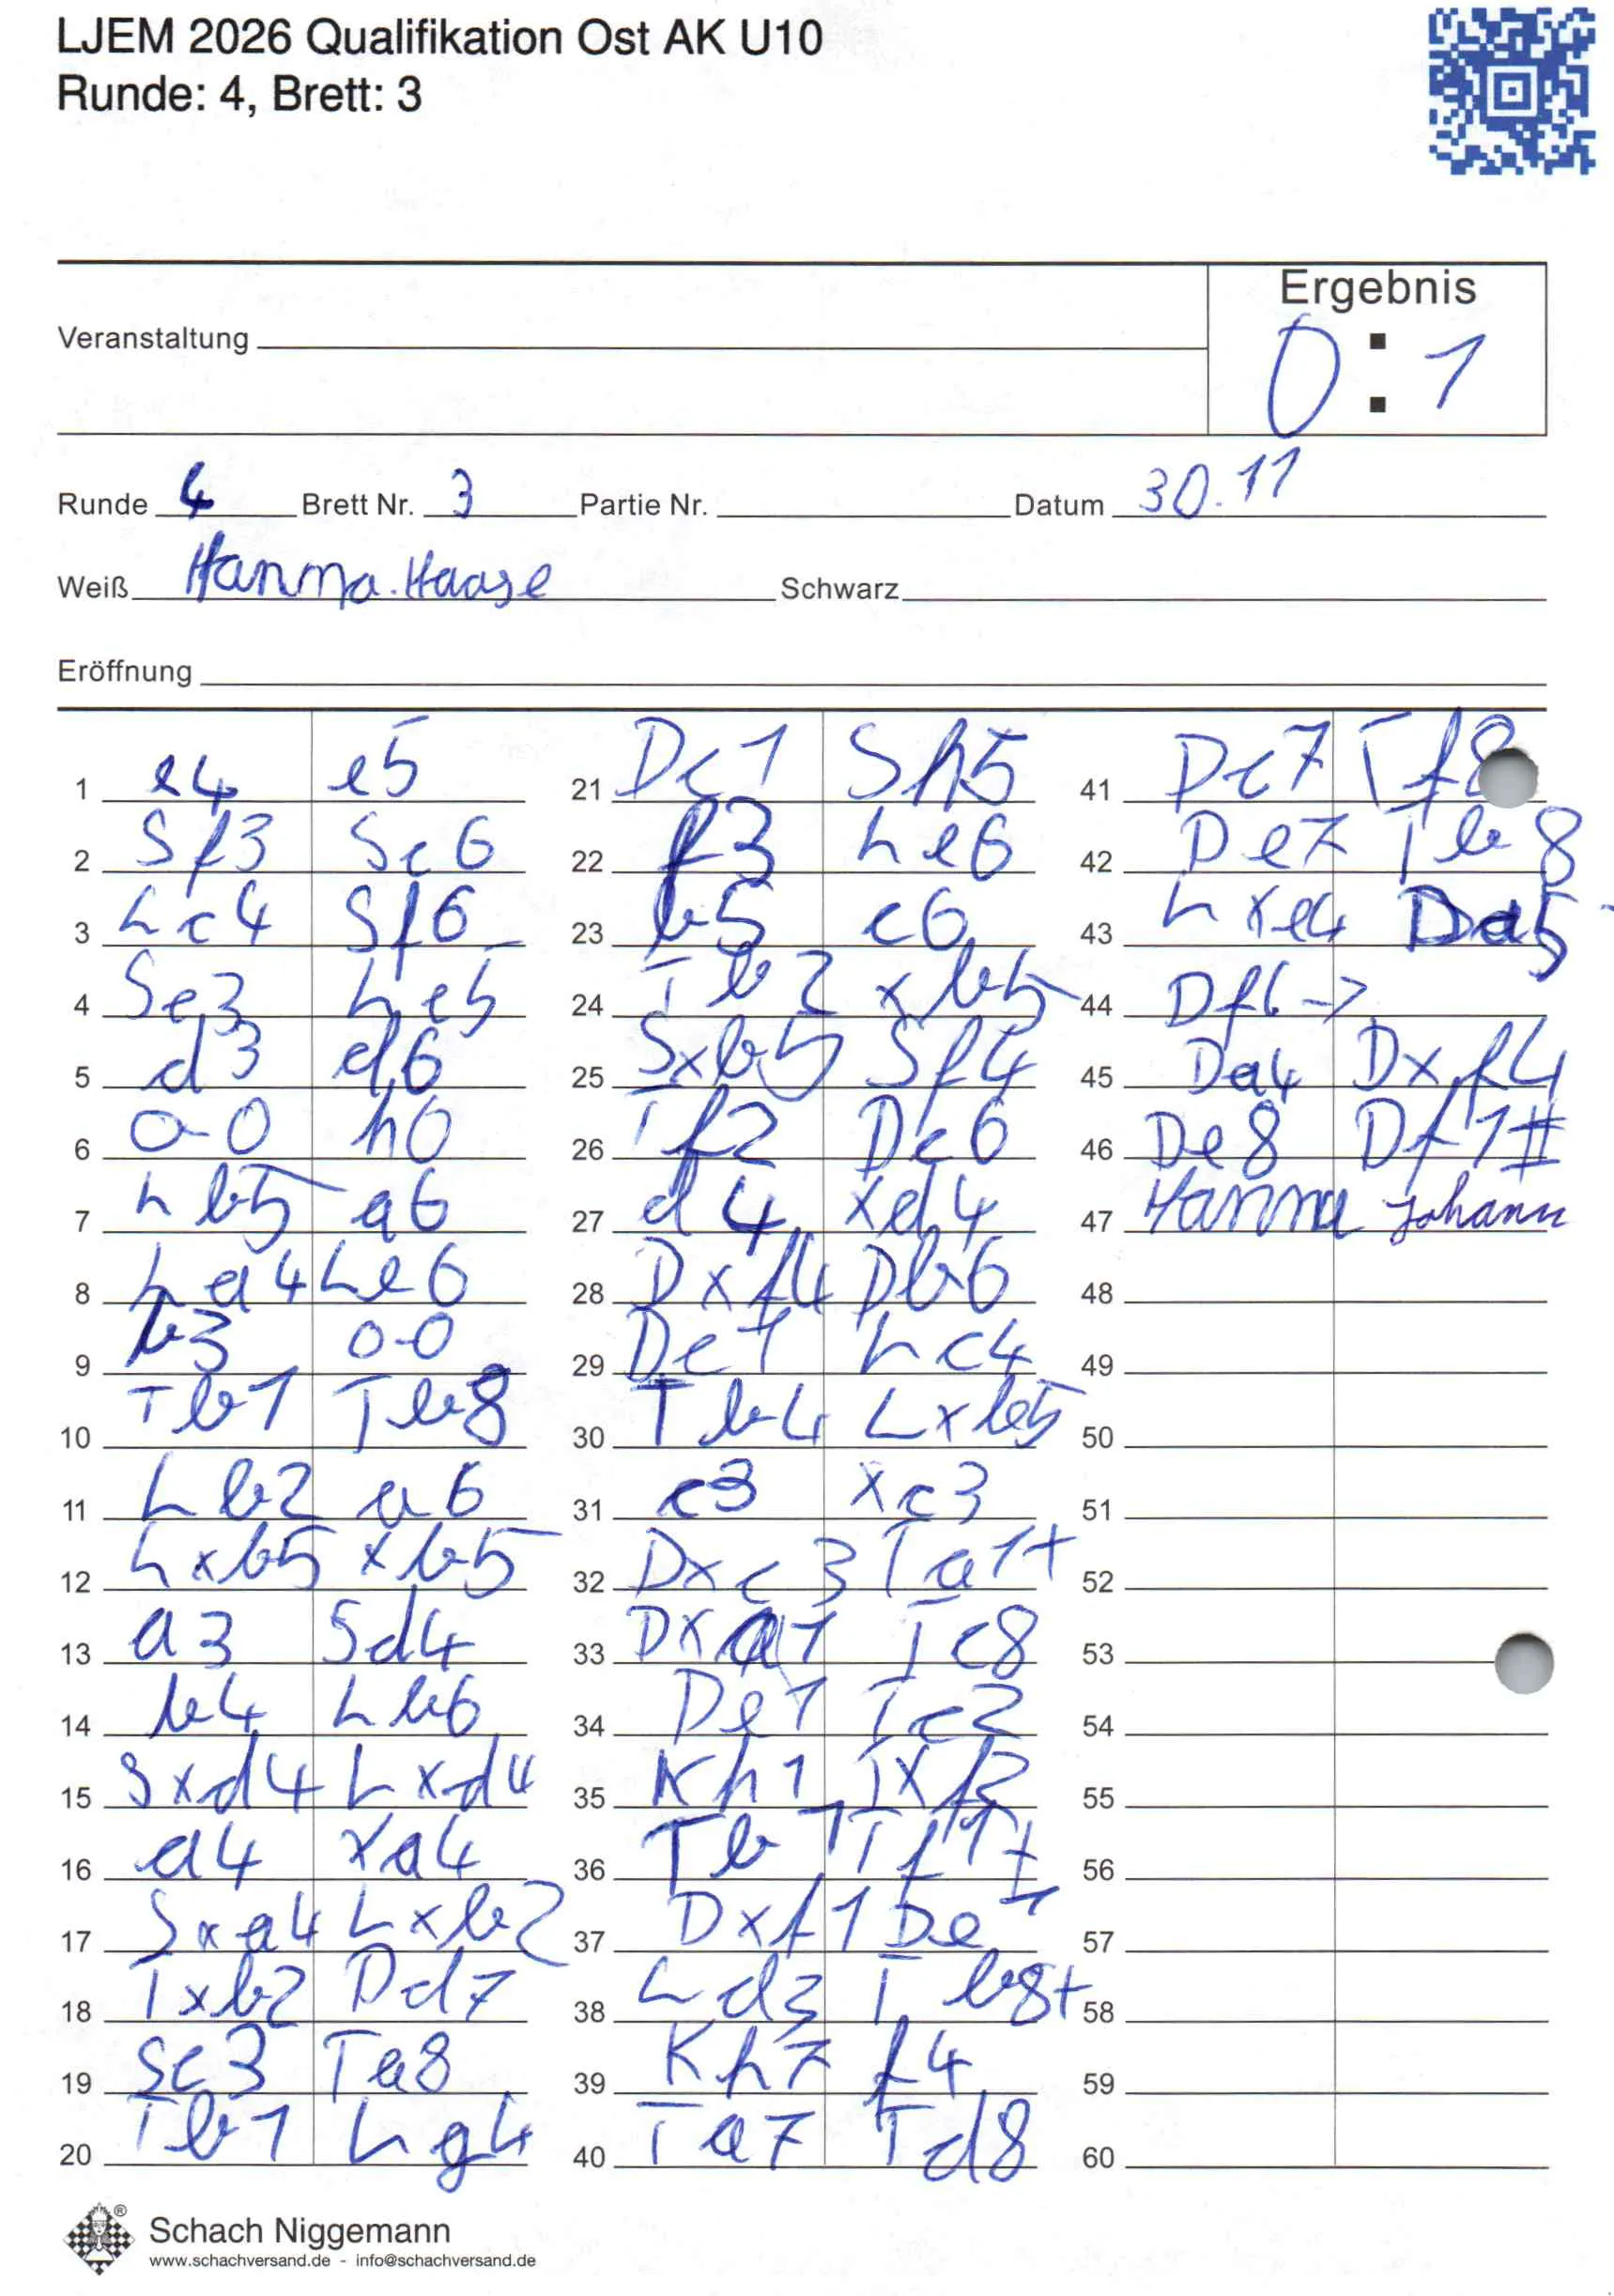 LJEM 2026 Qualifikation Ost AK U10
Runde: 4, Brett: 3
Ergebnis
Veranstaltung
0 : 1
Runde 4 Brett Nr. 3 Partie Nr. Datum 30.11
Weiß Hanna.Haase Schwarz
Eröffnung
1 e4 e5
2 Sf3 Sc6
3 Lc4 Sf6
4 Sc3 Lc5
5 d3 d6
6 0-0 h6
7 Lb5 a6
8 La4 Le6
9 b3 0-0
10 Tb1 Tb8
11 Lb2 b6
12 Lxb5 xb5
13 a3 Sd4
14 b4 Lb6
15 Sxd4 Lxd4
16 a4 xa4
17 Sxa4 Lxb2
18 Txb2 Dd7
19 Sc3 Ta8
20 Tb1 Lg4
21 Dc1 Sh5
22 f3 Le6
23 b5 c6
24 Tb2 xb5
25 Sxb5 Sf4
26 Tf2 Dc6
27 d4 xd4
28 Dxf4 Db6
29 Dc1 Lc4
30 Tb4 Lxb5
31 c3 xc3
32 Dxc3 Ta1+
33 Dxa1 Tc8
34 De1 Tc2
35 Kh1 Txf2
36 Tb1 Tf1+
37 Dxf1 De
38 Ld3 Tb8+
39 Kh7 f4
40 Ta7 Td8
41 Dc7 Tf8
42 De7 Tb8
43 Lxe4 Da5
44 Df6 ->
45 Da4 Dxf4
46 De8 Df1#
47 Hanna Johann
48
49
50
51
52
53
54
55
56
57
58
59
60
Schach Niggemann
www.schachversand.de - info@schachversand.de